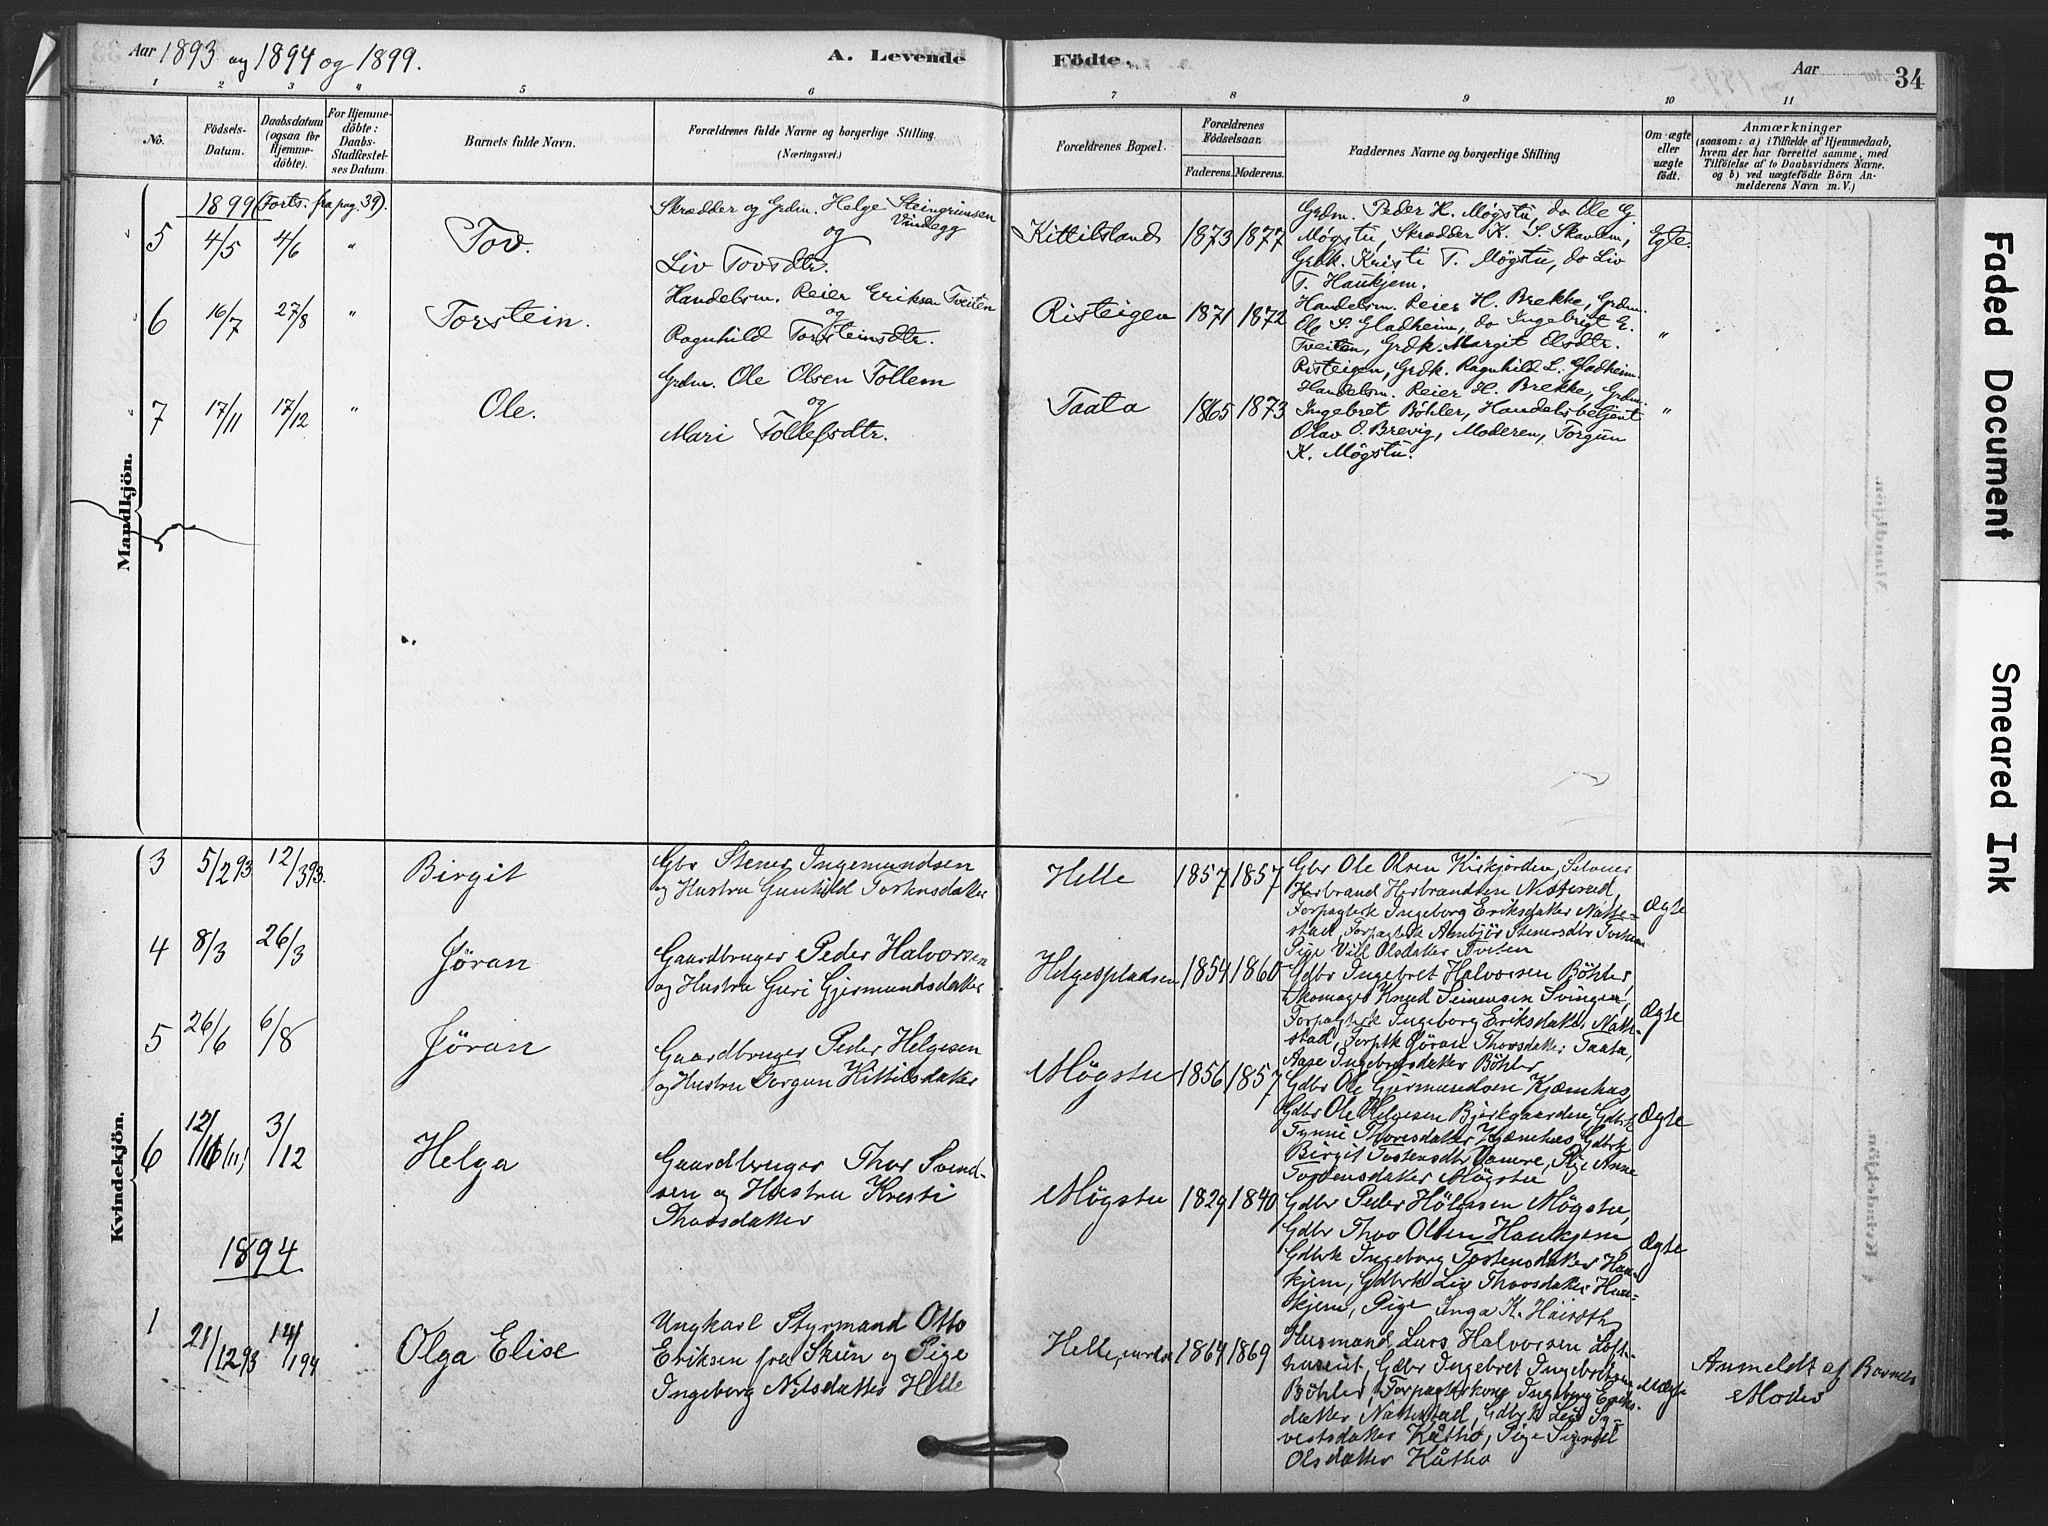 Aar 1893 og 1894 og 1899.
A. Levende Födte.
Aar 34
1 2 3 " 5 6 7 8 9 10 11
No.
Födsels-
Datum.
Daabsdatum
(ogsaa for
Hjemme-
döbte).
For Hjemme-
döbte:
Daabs-
Stadfæstel-
ses Datum.
Barnets fulde Navn.
Forældrenes fulde Navne og borgerlige Stilling.
(Næringsvei.)
Forældrenes Bopæl.
Forældrenes
Födselsaar.
Faderens. Moderens.
Faddernes Navne og borgerlige Stilling
Om ægte
eller
uægte
födt.
Anmærkninger
(saasom: a) i Tilfælde af Hjemmedaab,
hvem der har forrettet samme, med
Tilföielse af to Daabsvidners Navne.
og b) ved uægtefödte Börn An-
melderens Navn m. V.)
Mandkjön.
1899 (Forts. fra pag. 39).
5 4/5 4/6 " Tov.
Skrædder og Grdm. Helge Steingrimsen
Vindegg
og
Liv Tovsdtr.
Kittilsland 1873 1877
Grdm. Peder H. Møgstu, do Ole G.
Møgstu, Skrædder K. S. Skavlem,
Grdk. Kristi T. Møgstu, do Liv
T. Haukjem.
Egte.
6 16/7 27/8 " Torstein.
Handelsm. Reier Eriksen Tveiten
og
Ragnhild Torsteinsdtr.
Risteigen 1871 1872
Handelsm. Reier H. Brekke, Grdm.
Ole S. Gladheim, do Ingebrigt E.
Tveiten, Grdk. Margit Olsdtr.
Risteigen, Grdk. Ragnhild L. Gladheim.
"
7 17/11 17/12 " Ole.
Grdm. Ole Olsen Tollem
og
Mari Tollefsdtr.
Taata 1865 1873
Handelsm. Reier H. Brekke, Grdm.
Ingebret Bøhler, Handelsbetjent
Olav O. Brevig, Moderen, Torgun
K. Møgstu.
"
Kvindekjön.
3 5/2 93 12/3 93. Birgit
Gbr Stener Ingemundsen
og Hustru Gunhild
Helle 1857 1857
Gbr Ole Olsen
Herbrand Herbrandsen
Ingeborg Eriksdatter Natte-
stad,
Pige Olsdatter Tveiten
Ægte
4 8/3 26/3 Jöran
Gaardbruger Peder Halvorsen
og Hustru Guri Gjermundsdatter
Helgespladsen 1854 1860
Gdbr Ingebret Halvorsen Böhler,
Skomager Knud Simensen Svingen,
Ingeborg Eriksdatter Natte-
stad, Jöran Thorsdatter Taata,
Aase Ingebretsdatter Böhler
Ægte
5 26/6 6/8 Jöran
Gaardbruger Peder Helgesen
og Hustru Torgun Kittilsdatter
Mögstu 1856 1857
Gdbr Ole Gjermundsen Kjæmhus,
Gdbr Ole Helgesen Björkgaarden, Gdbrk
Thorsdatter Kjæmhus, Gdbrk
Birgit Tostensdtr Pige Anne
Tostensdatter Mögstu
Ægte
6 12/11 3/12 Helga
Gaardbruger Thor Svend-
sen og Hustru Kristi
Thorsdatter
Mögstu 1829 1840
Gdbr Peder Helgesen Mögstu,
Gdbr Thov Olsen Haukjem
Gdbrk Ingeborg Tostensdatter Hau-
kjem, Gdbrk Liv Thovsdatter Hau-
kjem, Pige Inga K. Hairoth
Ægte
1894
1 21/12 93 14/1 94 Olga Elise
Ungkarl Styrmand Otto
Eriksen fra Skien og Pige
Ingeborg Nilsdatter Helle
Helle, nordre 1864 1869
Husmand Lars Halvorsen Loft-
huseiet, Gdbr Ingebret
Böhler, Forpagterkone Ingeborg Eriks-
datter Nattestad, Gdbrk Sy-
vertsdatter Kåttho, Pige Sigrid
Olsdatter Kåttho
Uægte
Anmeldt af Barnets
Moder
Faded Document
Smeared Ink